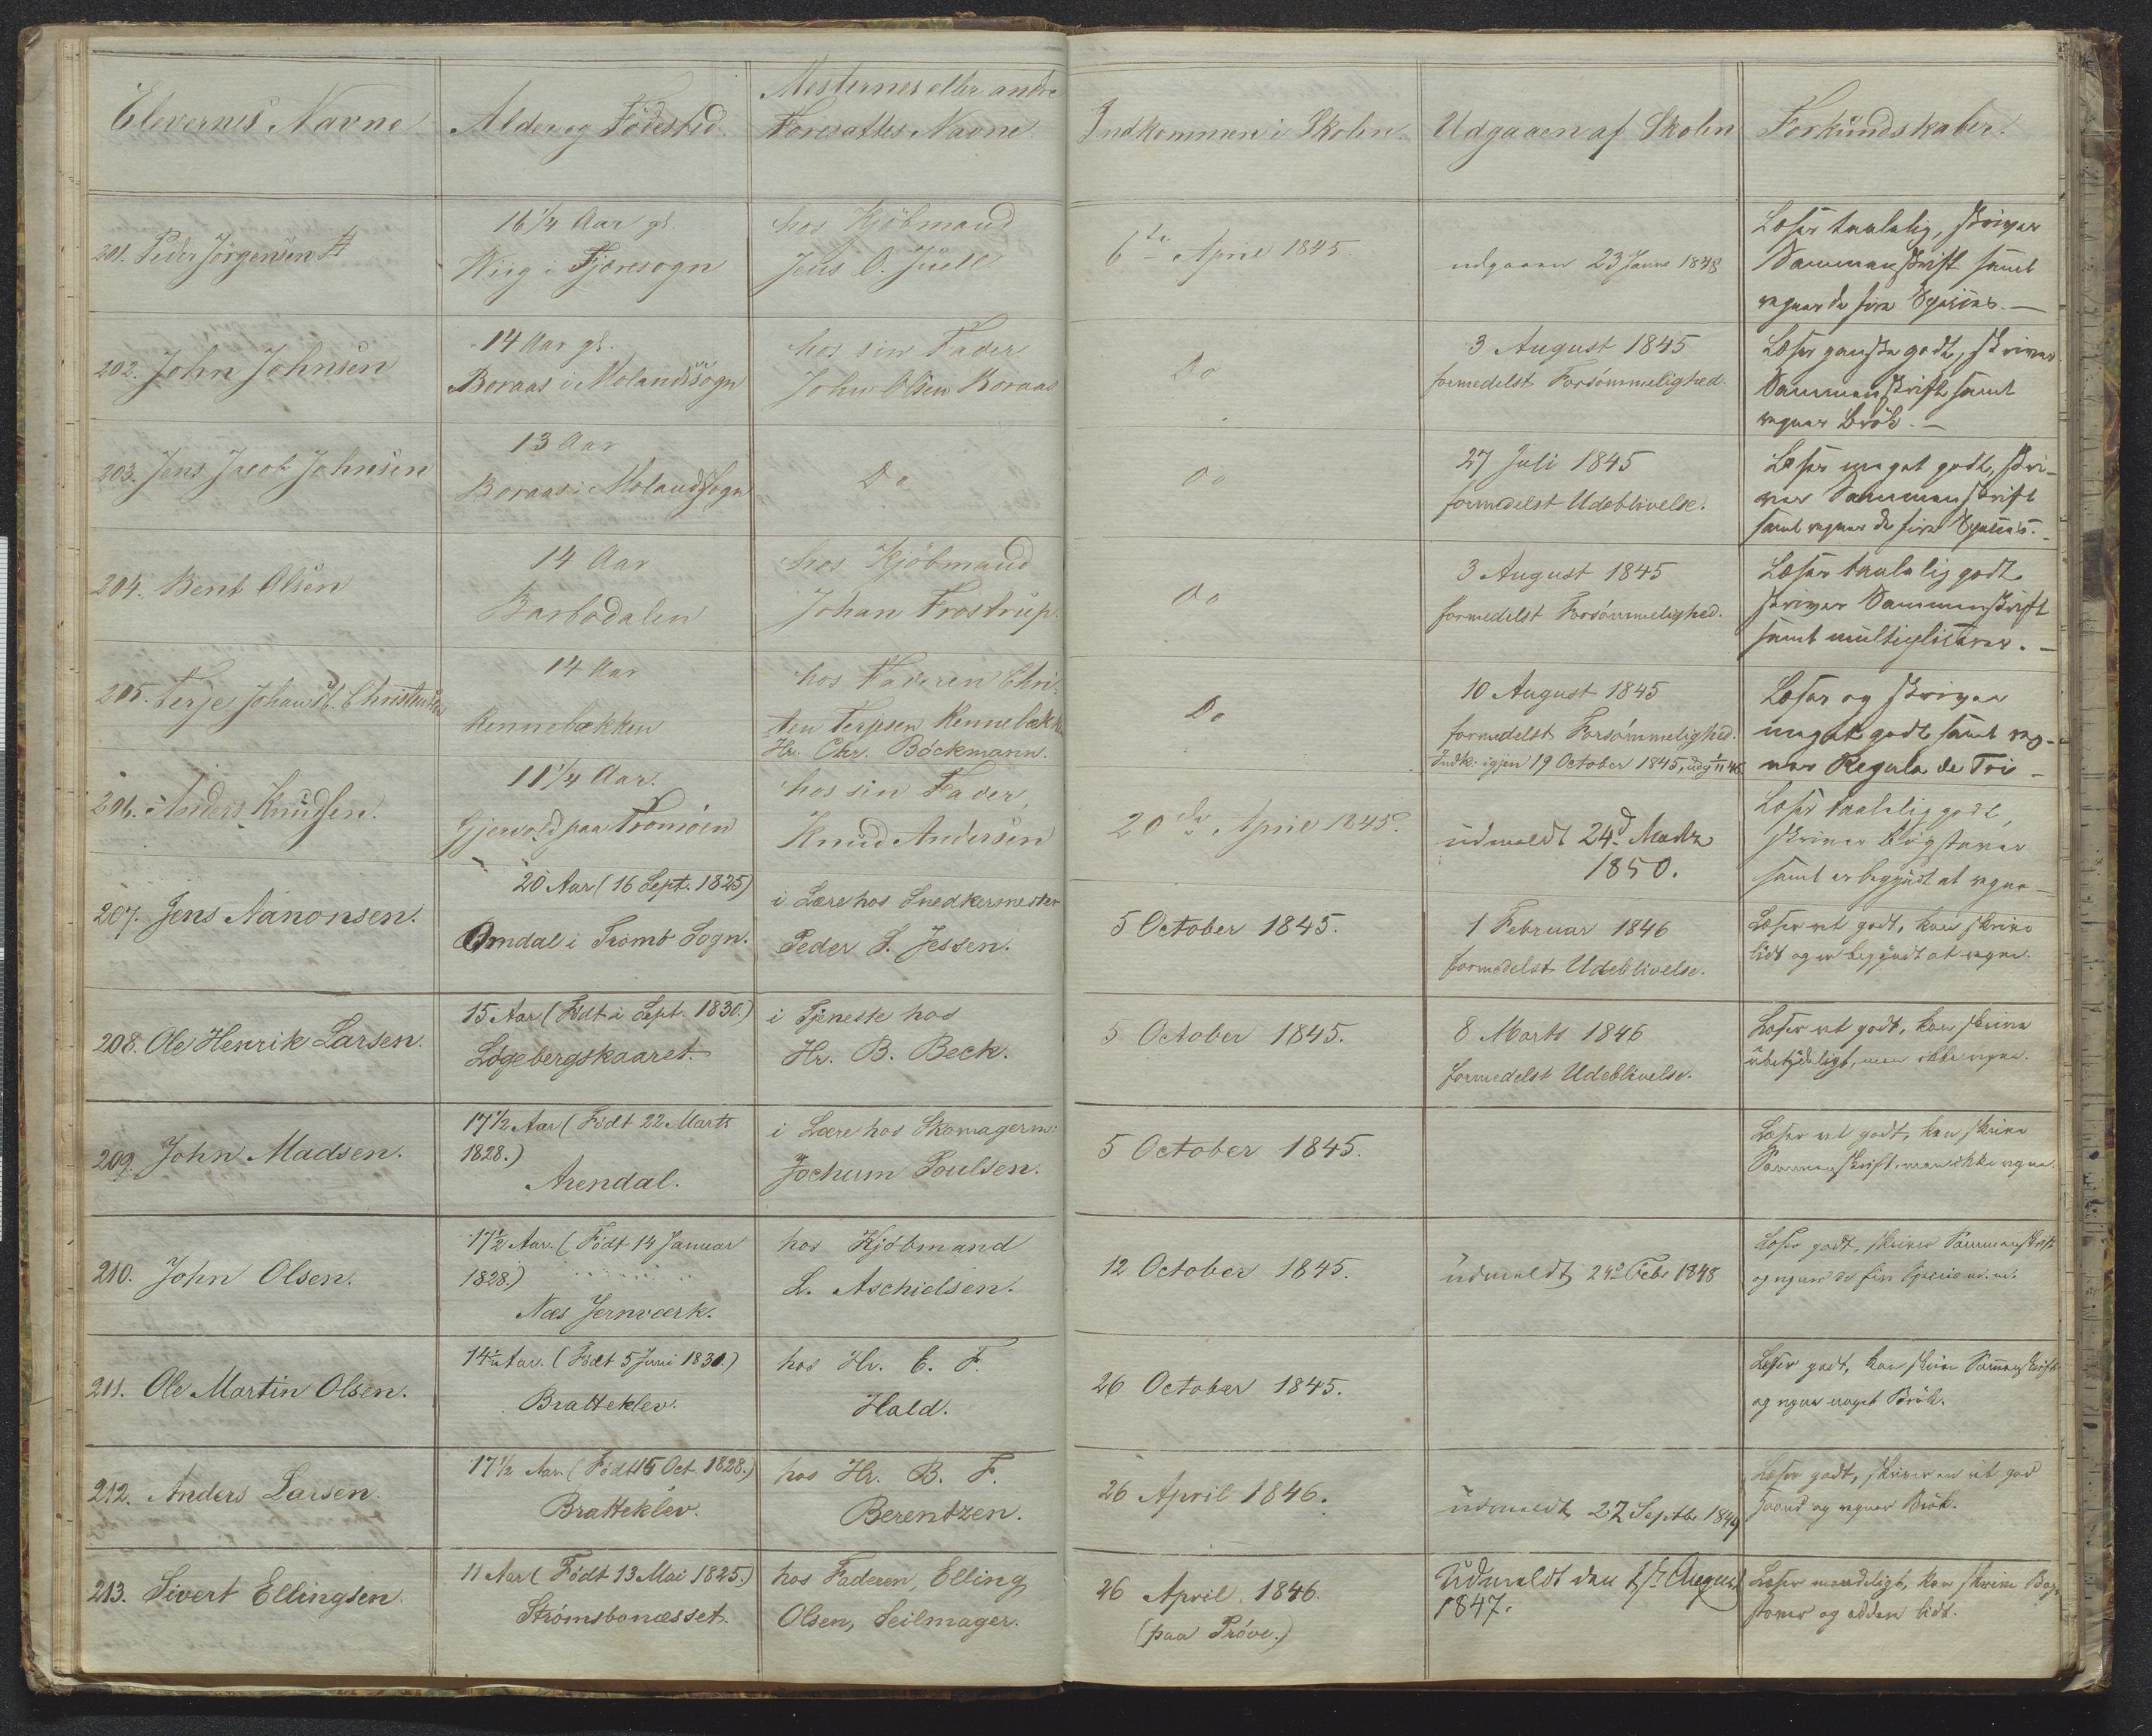 Elevernes Navne
Alder og Fødested.
Mesternes eller andre
Foresattes Navne.
Indkommen i Skolen.
Udgaaen af Skolen
Forkundskaber.
201. Peder Jörgensen
16 1/4 Aar gl.
Wiig i Fjæresogn
hos Kjöbmand
Jens O. Juell.
6te April 1845.
udgaaen 23 Janua 1848
Læser taalelig, skriver
Sammenskrift samt
regner de fire Species. —
202. John Johnsen
14 Aar gl.
Boraas i Molandssogn
hos sin Fader
John Olsen Boraas
Do
3 August 1845
formedelst Forsömmelighed.
Læser ganske godt, skriver
Sammenskrift samt
regner Brök. —
203. Jens Jacob Johnsen
13 Aar
Boraas i Molandssogn
Do
Do
27 Juli 1845
formedelst Udeblivelse.
Læser meget godt, skri-
ver Sammenskrift
samt regner de fire Species. —
204. Bent Olsen
14 Aar
Barbodalen
hos Kjöbmand
Johan Frostrup.
Do
3 August 1845
formedelst Forsömmelighed.
Læser taalelig godt
skriver Sammenskrift
samt multiplicerer. —
205. Terje Johan Chr. Christensen
14 Aar
Kennebækken
hos Faderen Chri-
sten Terjesen Kennebækken
Hr. Chr. Böckmann.
Do
10 August 1845
formedelst Forsömmelighed.
Indk. igjen 19 October 1845, udg 1/11 46
Læser og skriver
meget godt samt reg-
ner Regula de Tri —
206. Anders Knudsen.
11 1/4 Aar.
Gjervold paa Tromöen
hos sin Fader,
Knud Andersen
20de April 1845.
udmeldt 24d. Marts
1850.
Læser taalelig godt,
skriver Bogstaver
samt er begyndt at regne —
207. Jens Aanonsen.
20 Aar (16 Sept. 1825)
Omdal i Tromö Sogn.
i Lære hos Snedkermester
Peder S. Jessen.
5 October 1845.
1 Februar 1846
formedelst Udeblivelse.
Læser ret godt, kan skrive
lidt og er begyndt at regne.
208. Ole Henrik Larsen.
15 Aar (Födt i Sept. 1830.)
Lögebergskaaret.
i Tjeneste hos
Hr. B. Beck.
5 October 1845.
8 Marts 1846
formedelst Udeblivelse.
Læser ret godt, kan skrive
ubetydeligt, men ikke regne.
209. John Madsen.
17 1/2 Aar (Födt 22 Marts
1828.)
Arendal.
i Lære hos Skomagerm:
Jochum Poulsen.
5 October 1845.
Læser ret godt, kan skrive
Sammenskrift, men ikke regne.
210. John Olsen.
17 1/2 Aar. (Födt 14 Januar
1828.)
Næs Jernværk.
hos Kjöbmand
L. Aschielsen.
12 October 1845.
udmeldt 24d Febr 1848
Læser godt, skriver Sammenskrift
og regner de fire Species
211. Ole Martin Olsen.
14 1/2 Aar. (Födt 5 Juni 1831.)
Bratteklev.
hos Hr. C. F.
Hald.
26 October 1845.
Læser godt, kan skrive Sammenskrift
og regner noget Brök.
212. Anders Larsen.
17 1/2 Aar (Födt 15 Oct. 1828.)
Bratteklev.
hos Hr. B. F.
Berentzen.
26 April 1846.
udmeldt 27 Septbr 1849
Læser godt, skriver en ret god
Haand og regner Brök.
213. Sivert Ellingsen.
11 Aar (Födt 13 Mai 1825.)
Strömsbonæsset.
hos Faderen, Elling
Olsen, Seilmager.
26 April. 1846.
(paa Pröve.)
Udmeldt den 1ste August
1847.
Læser maadeligt, kan skrive Bog-
staver og lidt.